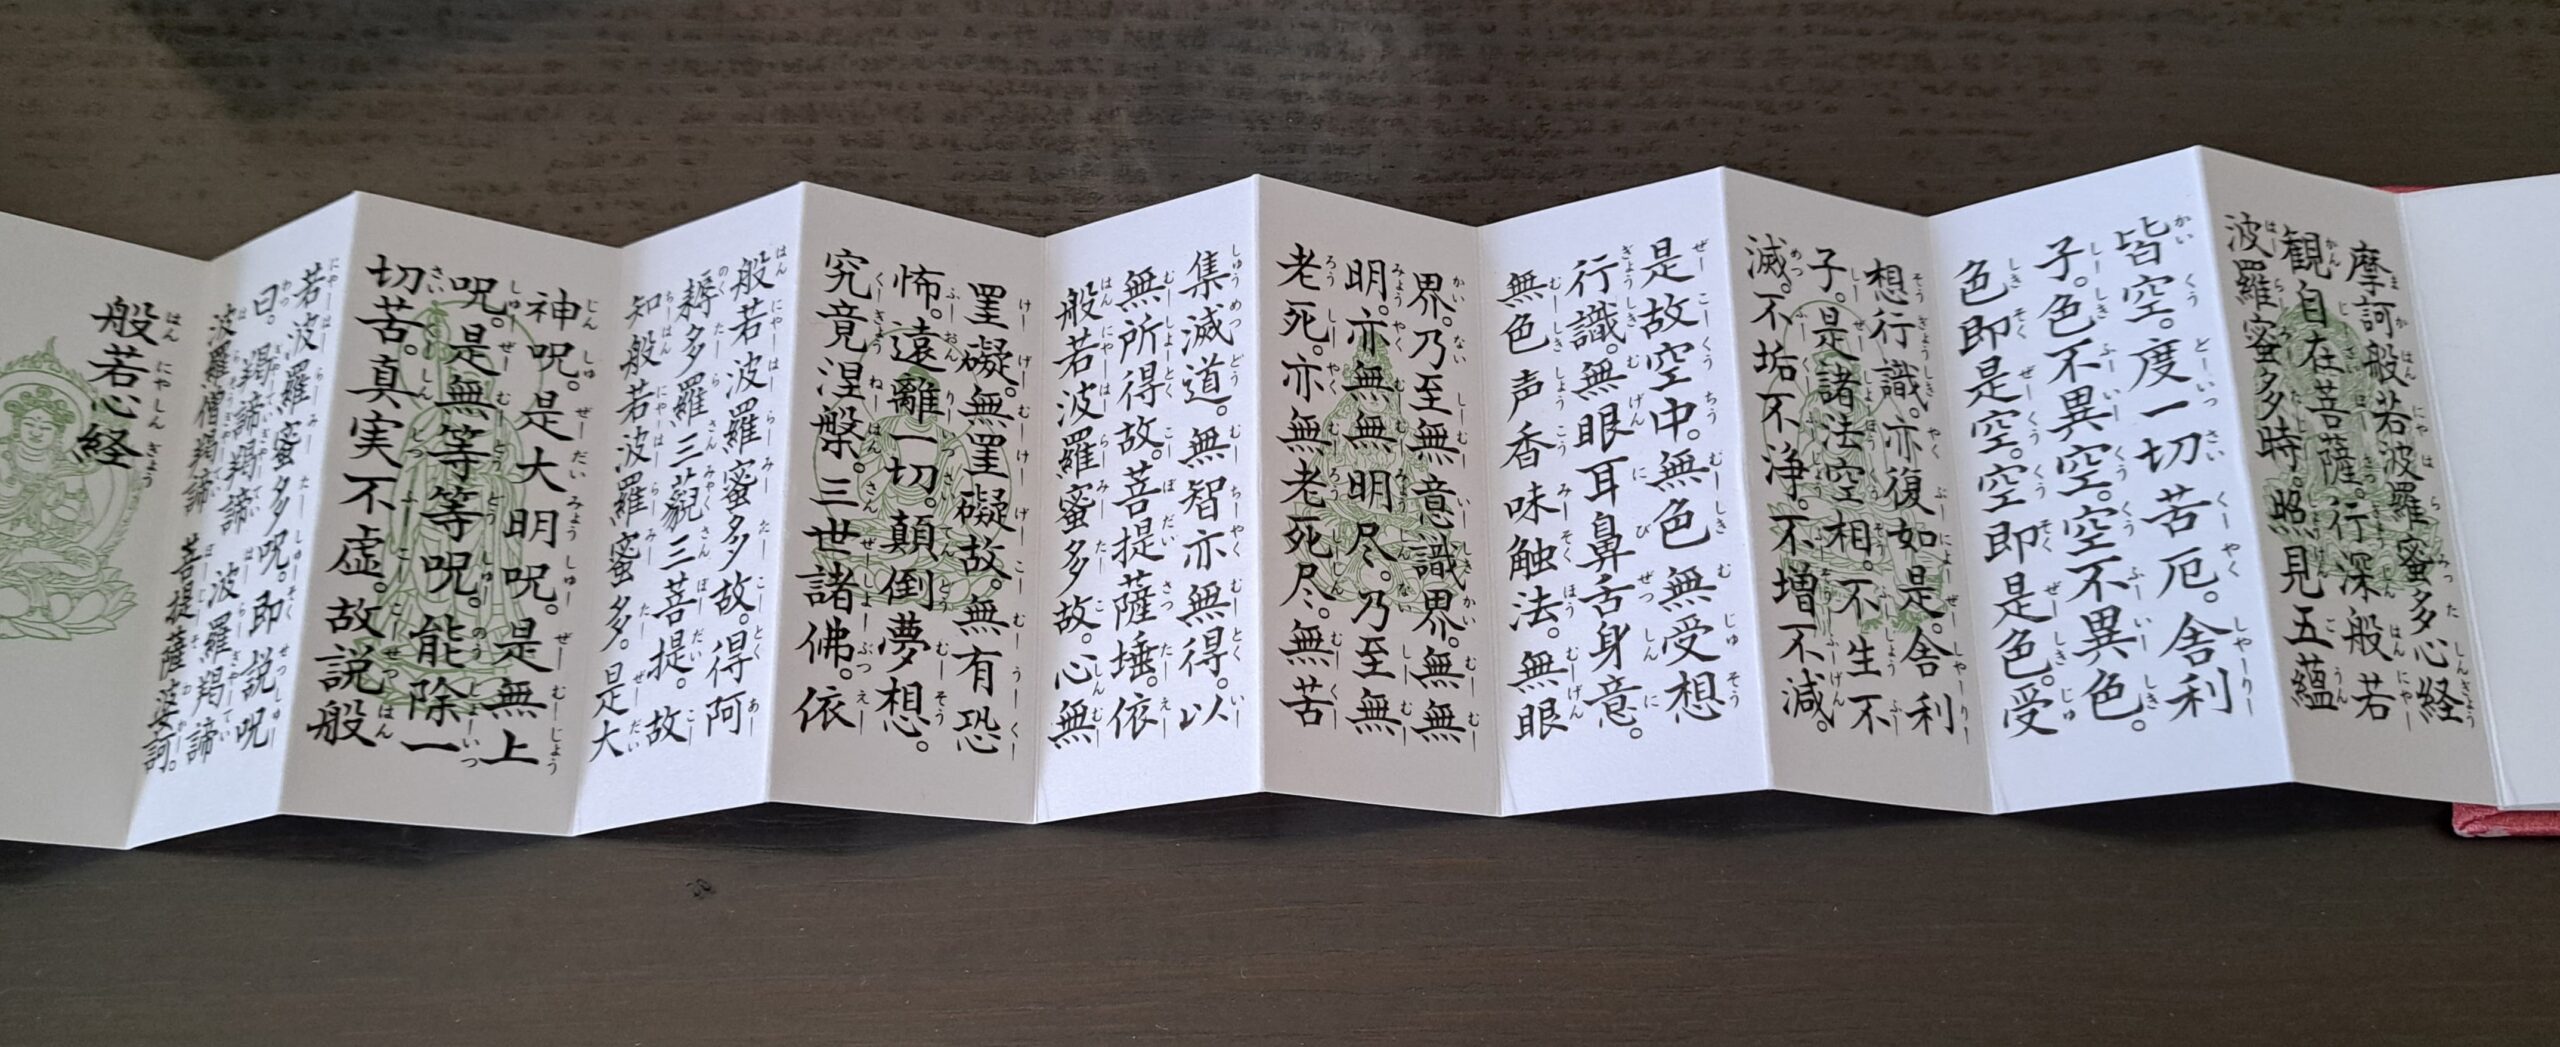 摩訶般若波羅蜜多心経
観自在菩薩。行深般若
波羅蜜多時。照見五蘊
皆空。度一切苦厄。舎利
子。色不異空。空不異色。
色即是空。空即是色。受
想行識。亦復如是。舎利
子。是諸法空相。不生不
滅。不垢不浄。不増不減。
是故空中。無色無受想
行識。無眼耳鼻舌身意。
無色声香味触法。無眼
界。乃至無意識界。無無
明。亦無無明尽。乃至無
老死。亦無老死尽。無苦
集滅道。無智亦無得。以
無所得故。菩提薩埵。依
般若波羅蜜多故。心無
罣礙。無罣礙故。無有恐
怖。遠離一切。顛倒夢想。
究竟涅槃。三世諸佛。依
般若波羅蜜多故。得阿
耨多羅三藐三菩提。故
知般若波羅蜜多。是大
神呪。是大明呪。是無上
呪。是無等等呪。能除一
切苦。真実不虚。故説般
若波羅蜜多呪。即説呪
曰。羯諦羯諦 波羅羯諦
波羅僧羯諦 菩提薩婆訶。
般若心経